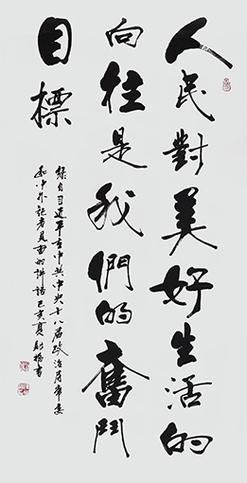 人民對美好生活的
向往是我們的奮鬥
目標
錄自习近平在中共中央十八届政治局常委
和中外記者見面時講話己亥夏